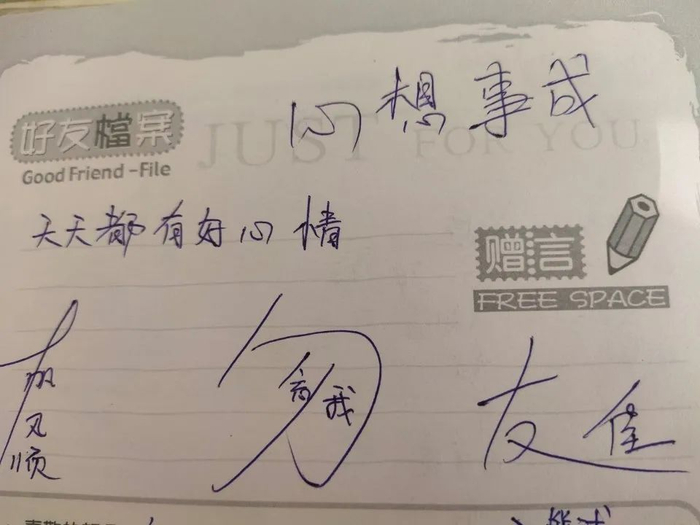 心想事成
好友檔案
JUST FOR YOU
Good Friend -File
天天都有好心情
赠言
FREE SPACE
帆风顺
勿 我
友佳